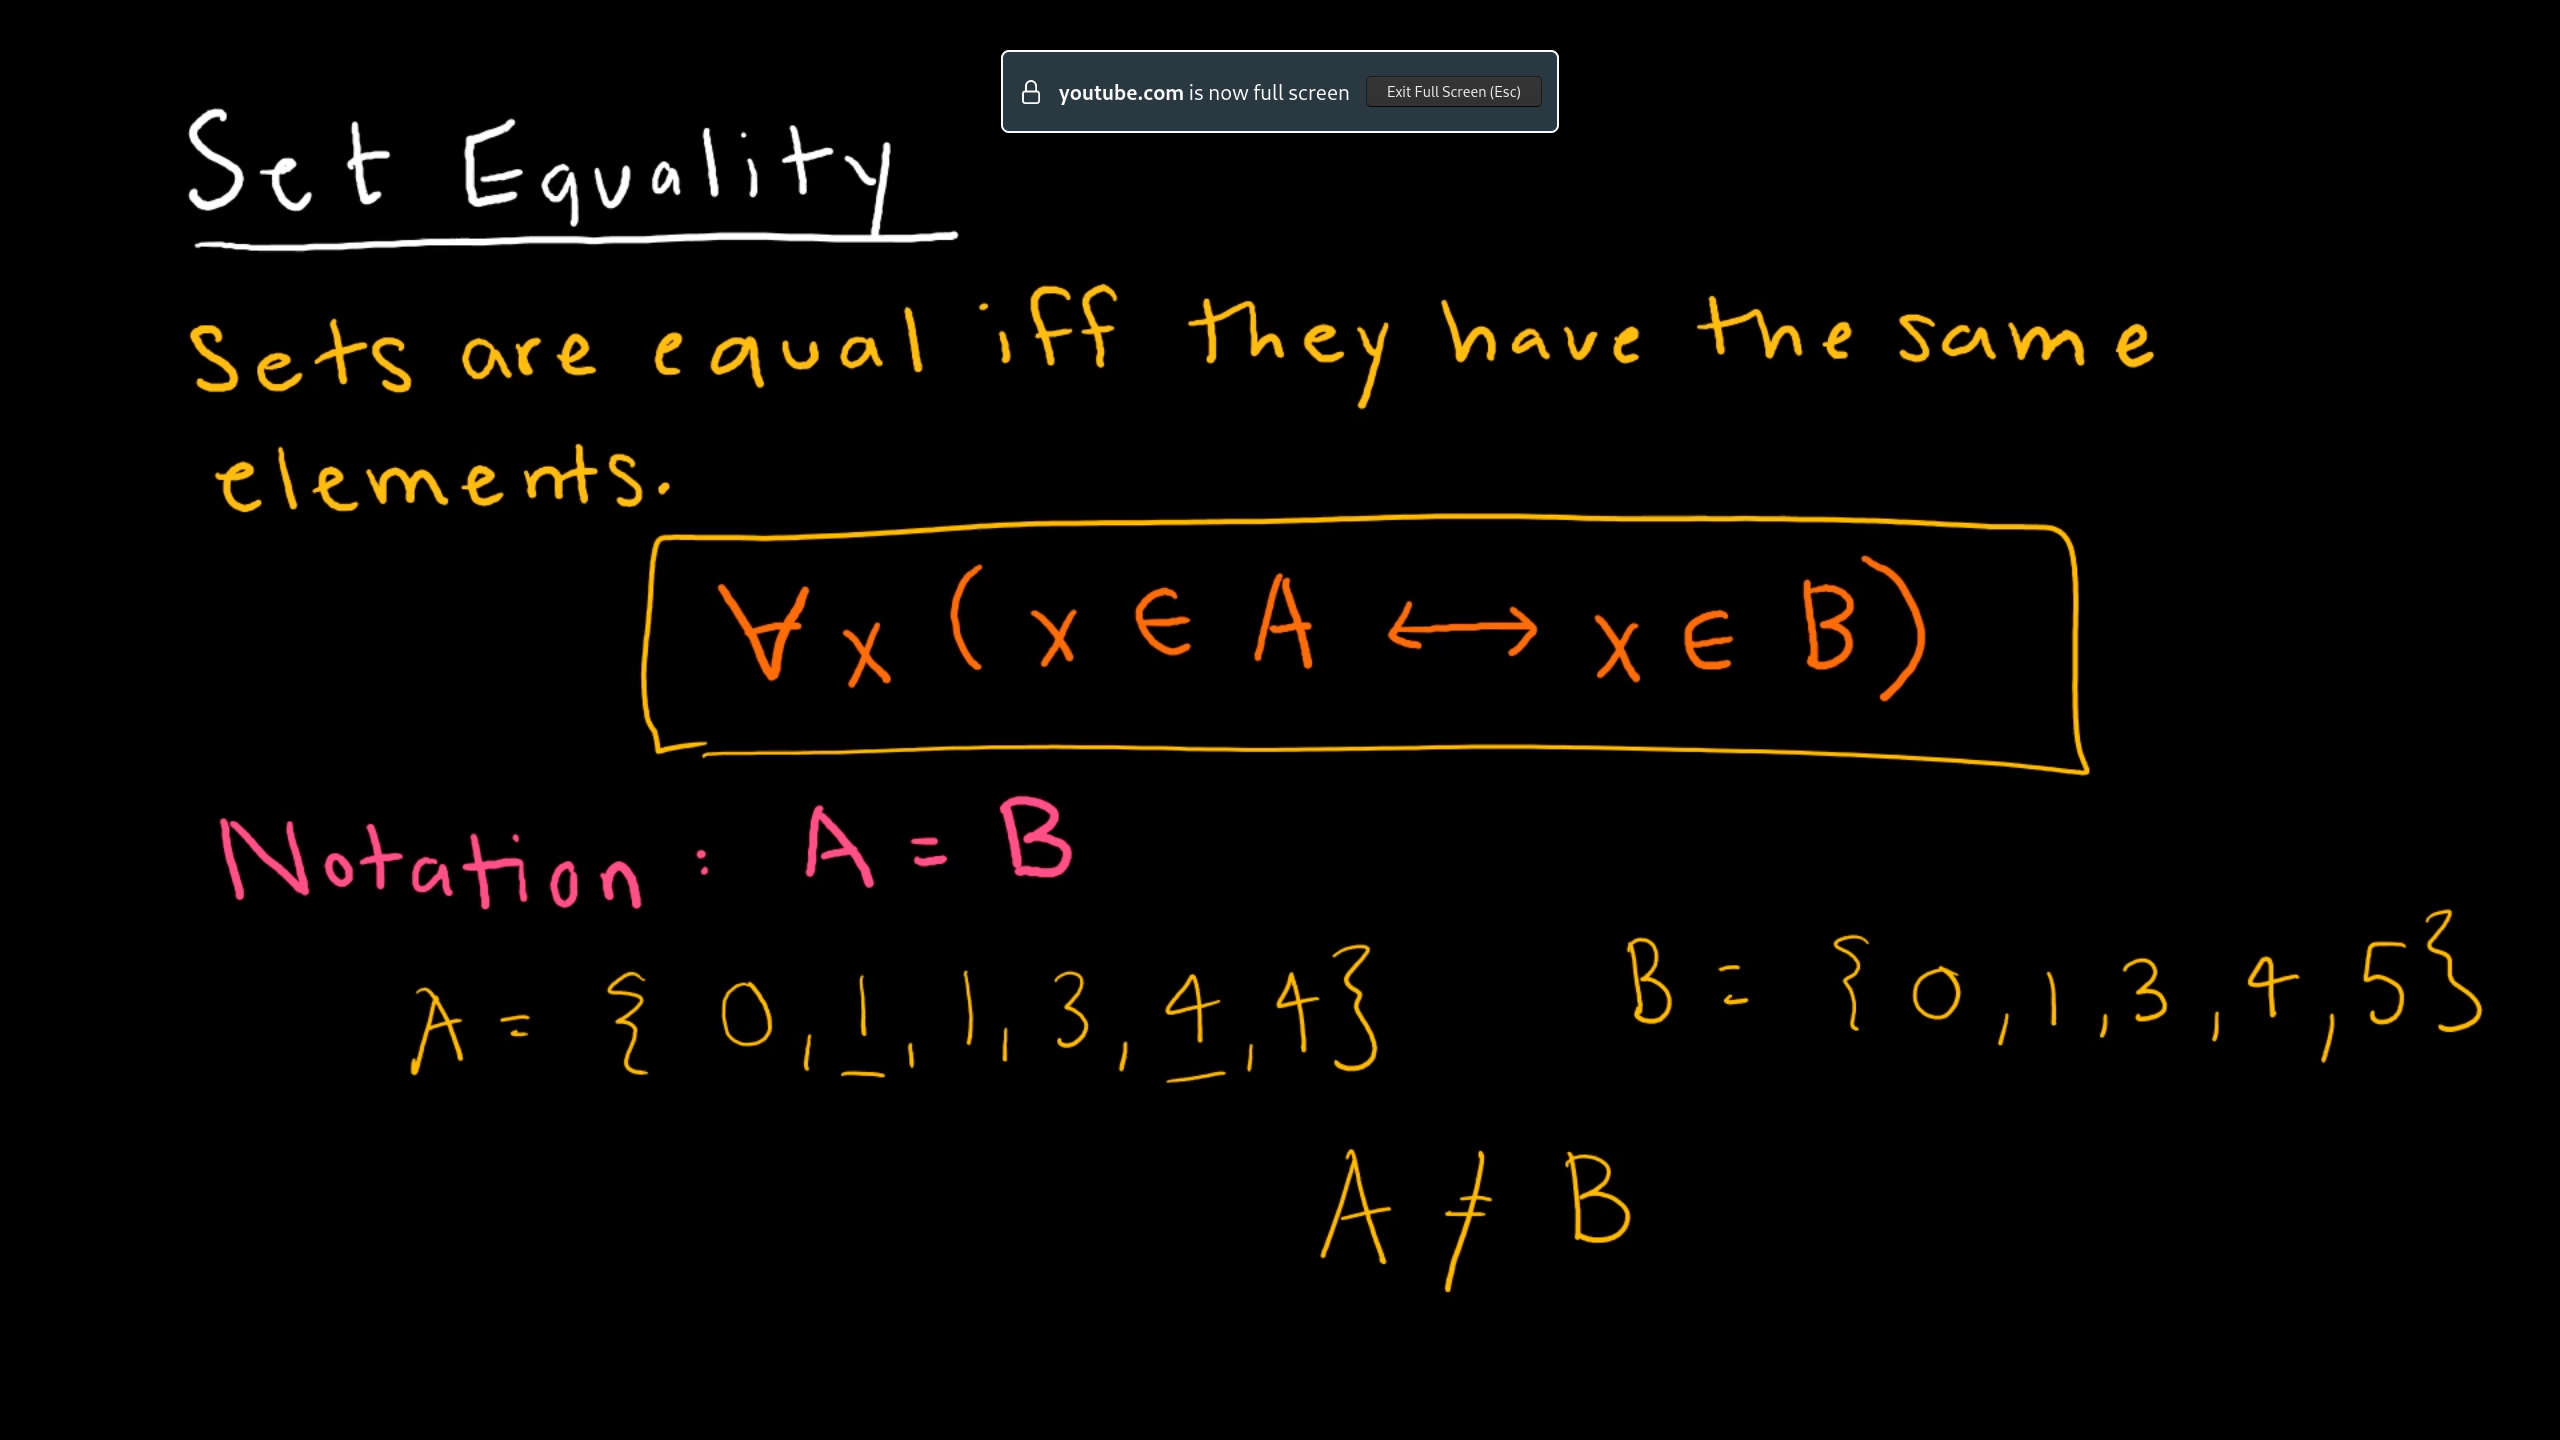 youtube.com is now full screen Exit Full Screen (Esc)
Set Equality
Sets are equal iff they have the same
elements.
∀x (x ∈ A ↔ x ∈ B)
Notation: A = B
A = { 0, 1, 1, 3, 4, 4} B = { 0, 1, 3, 4, 5}
A ≠ B